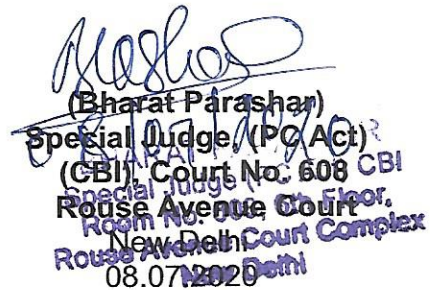 (Bharat Parashar)
Special Judge, (PC Act)
(CBI), Court No. 608
Rouse Avenue Court
New Delhi
08.07.2020
Special Judge CBI
Room No. Floor,
Rouse Avenue Court Complex
New Delhi